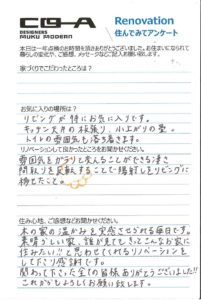 CO-A
DESIGNERS
MUKU MODERN
Renovation
住んでみてアンケート
本日は一年点検のお時間を頂きありがとうございました。お住まいになられて
暮らしの変化や、ご感想、メッセージなどご記入お願い致します。
家づくりでこだわったところは？
お気に入りの場所は？
リビングが特にお気に入りです。
キッチン天井の板張り、小上がりの畳。
トイレの雰囲気も落ち着きます。
リノベーションして良かったところをお聞かせください。
雰囲気をガラリと変えることができる事
間取りを変えることで陽射しをリビングに
移せたこと。
住み心地、ご感想などお聞かせください。
木の家の温かみを実感させられる毎日です。
素晴らしい家、誰が見てもきっとこんなお家に
住みたい♡と思わせてくれるリノベーションを
して下さり感謝です。
関わって下さった全ての皆様ありがとうございました!!
これからもよろしくお願い致します。